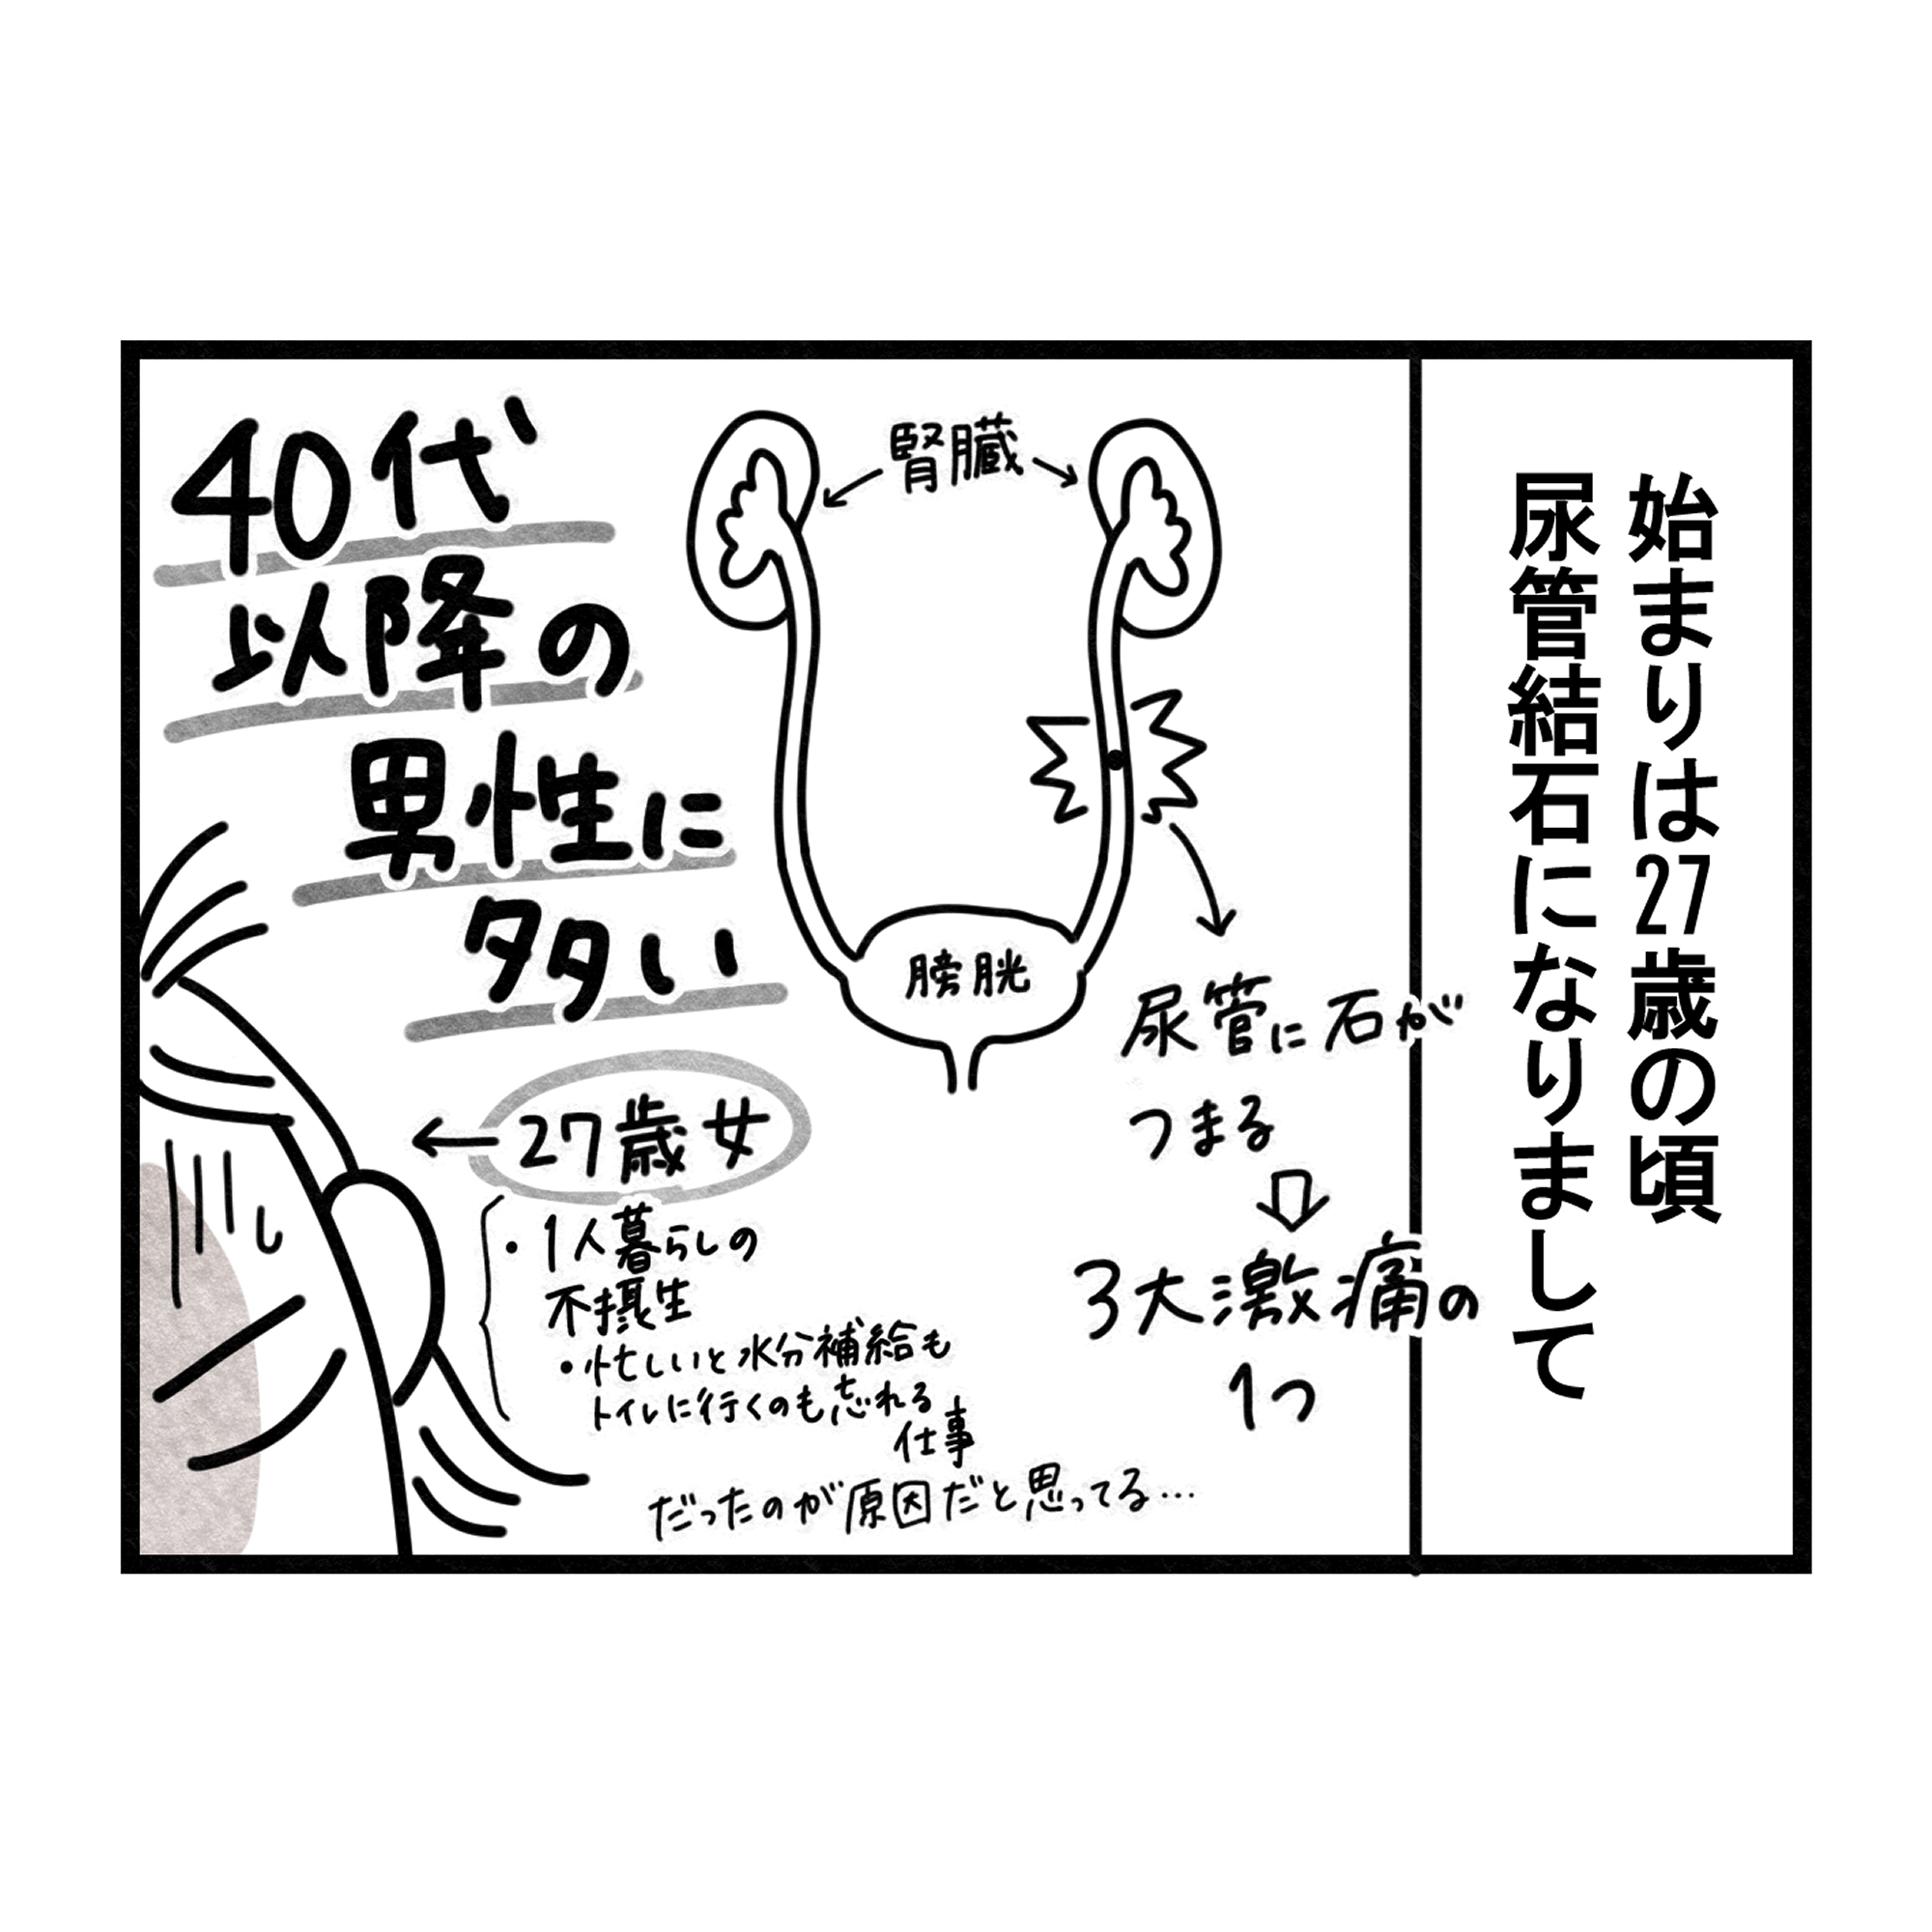 始まりは27歳の頃
尿管結石になりまして
腎臓
膀胱
尿管に石が
つまる
3大激痛の
1つ
40代
以降の
男性に
多い
27歳女
・1人暮らしの
不摂生
・忙しいと水分補給も
トイレに行くのも忘れる
仕事
だったのが原因だと思ってる…